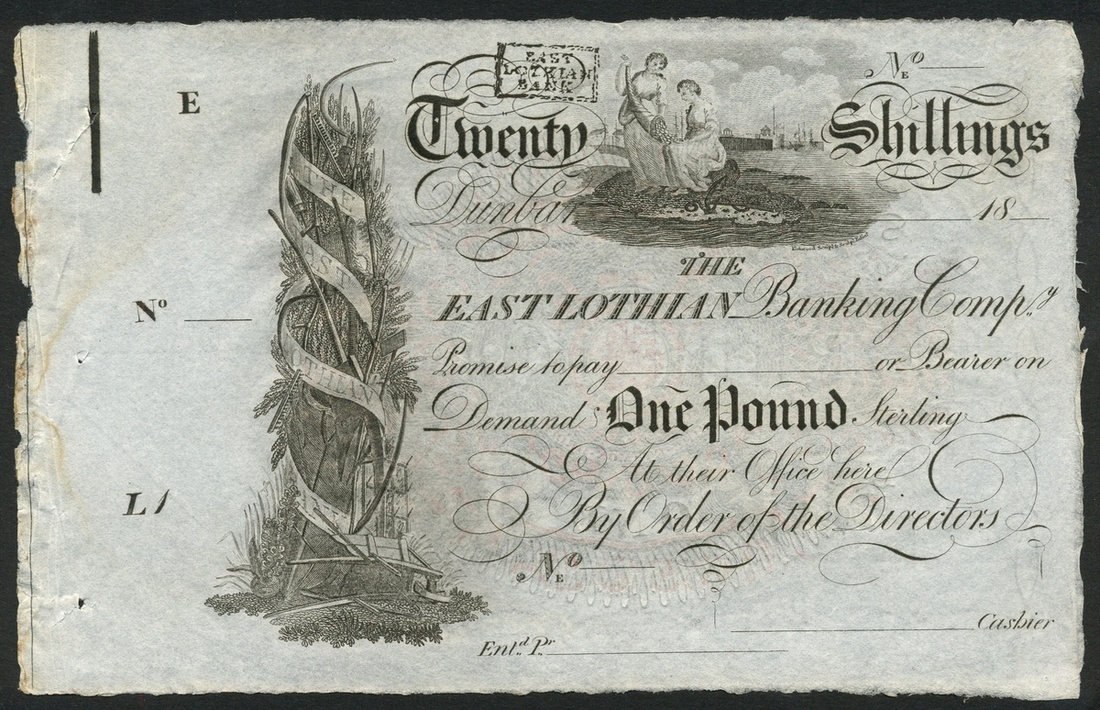 E
EAST
LOTHIAN
BANK
No E
Twenty Shillings
Dunbar 18
THE
EAST LOTHIAN Banking Compy
No
Promise to pay or Bearer on
Demand One Pound Sterling
At their Office here
L1
By Order of the Directors
No E
Cashier
Entd. Pr.
THE
EAST
LOTHIAN